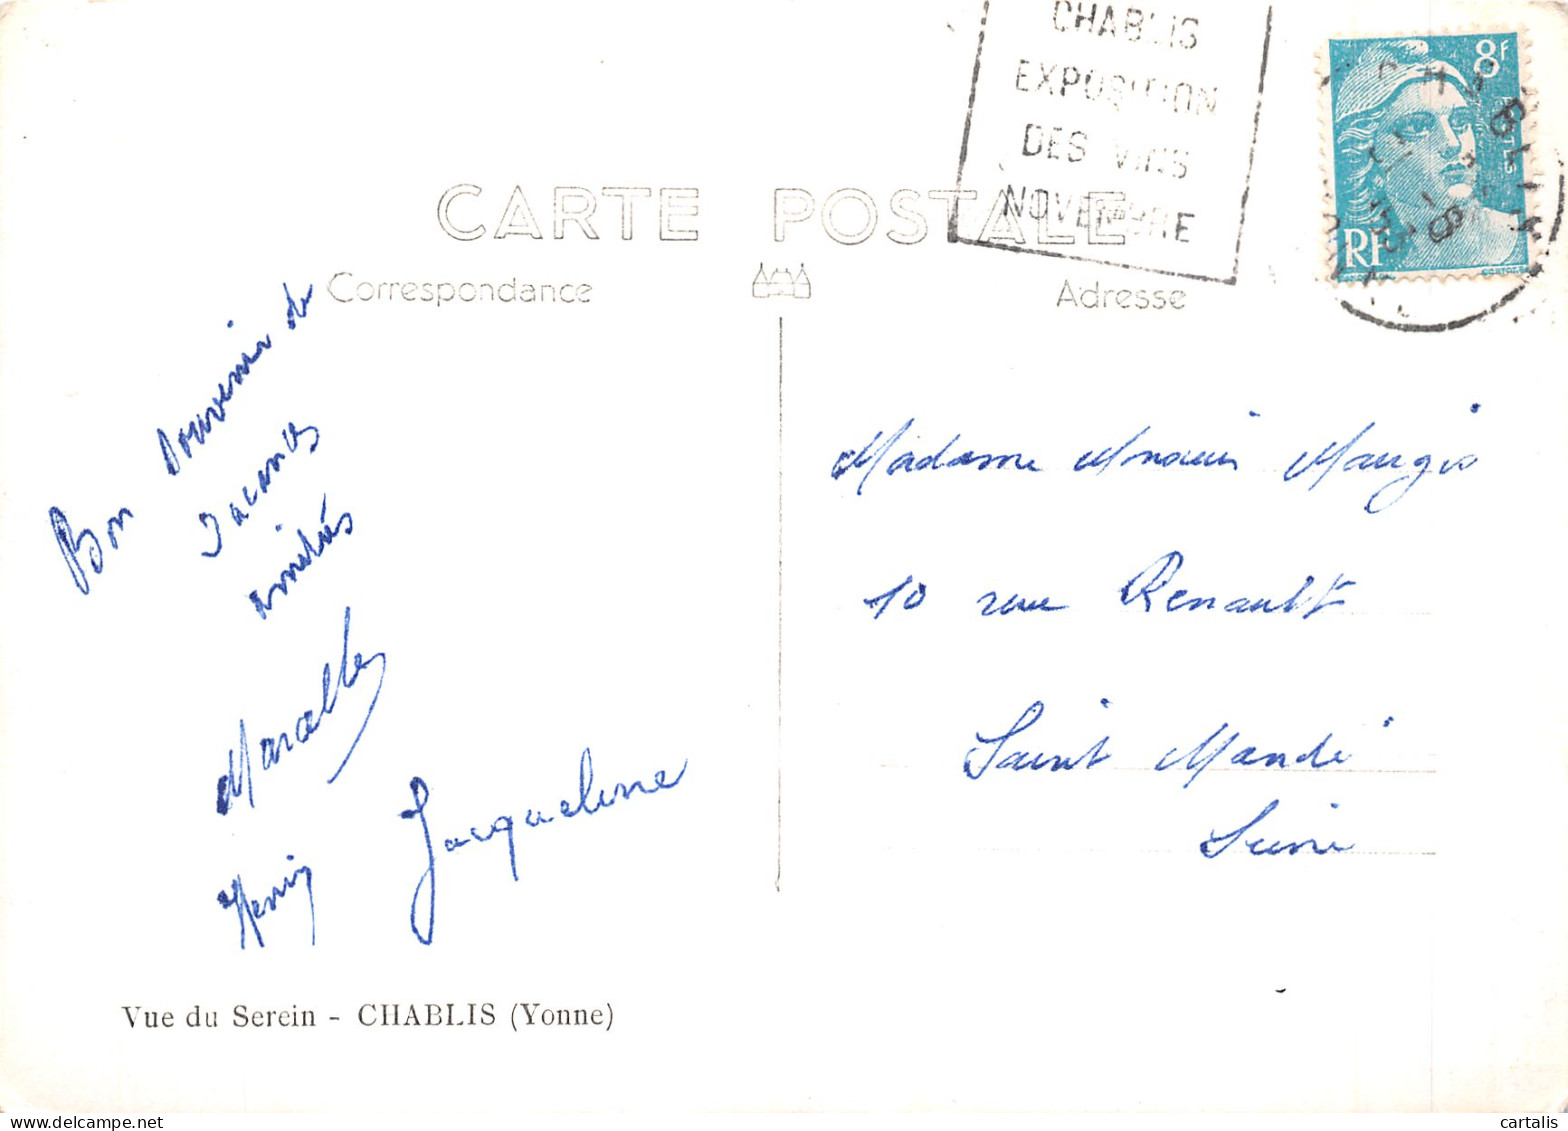 CHABLIS
EXPOSITION
DES VINS
NOVEMBRE
8F
RF
CHABLIS
CARTE POSTALE
Correspondance
Adresse
Bon souvenir de
vacances
amitiés
Marcelle
Henri
Jacqueline
Madame Maugis
10 rue Renault
Saint Mandé
Seine
Vue du Serein - CHABLIS (Yonne)
cartalis